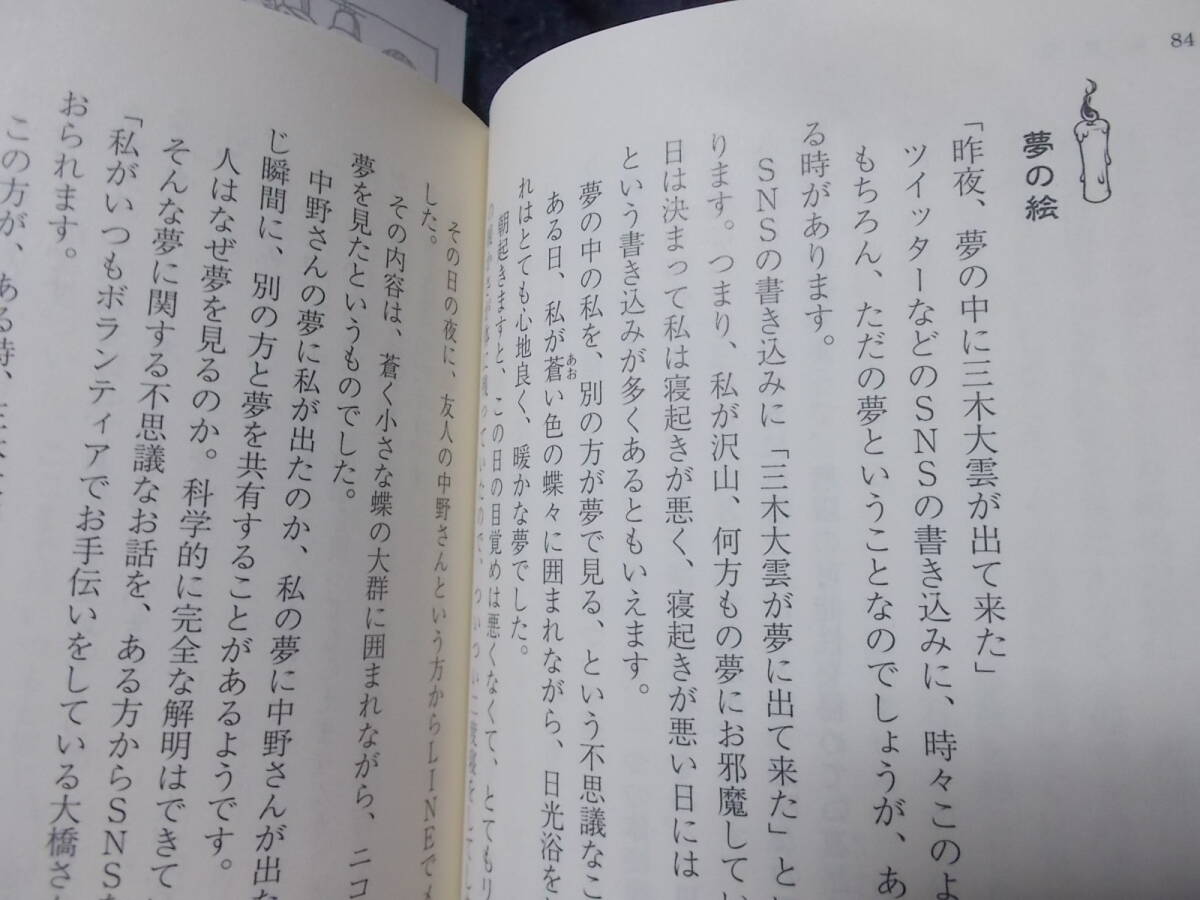 84
夢の絵
「昨夜、夢の中に三木大雲が出て来た」
ツイッターなどのSNSの書き込みに、時々このよ
もちろん、ただの夢ということなのでしょうが、あ
る時があります。
SNSの書き込みに「三木大雲が夢に出て来た」と
ります。つまり、私が沢山、何方もの夢にお邪魔してい
日は決まって私は寝起きが悪く、寝起きが悪い日には
という書き込みが多くあるともいえます。
夢の中の私を、別の方が夢で見る、という不思議なこ
ある日、私が蒼い色の蝶々に囲まれながら、日光浴を
あお
れはとても心地良く、暖かな夢でした。
朝起きますと、この日の目覚めは悪くなくて、とてもリ
っていたので、ついつい二度寝をして
その日の夜に、友人の中野さんという方からLINEでメ
した。
その内容は、蒼く小さな蝶の大群に囲まれながら、ニコ
夢を見たというものでした。
中野さんの夢に私が出たのか、私の夢に中野さんが出た
じ瞬間に、別の方と夢を共有することがあるようです。
人はなぜ夢を見るのか。科学的に完全な解明はできて
そんな夢に関する不思議なお話を、ある方からSNS
「私がいつもボランティアでお手伝いをしている大橋さ
おられます。
この方が、ある時、